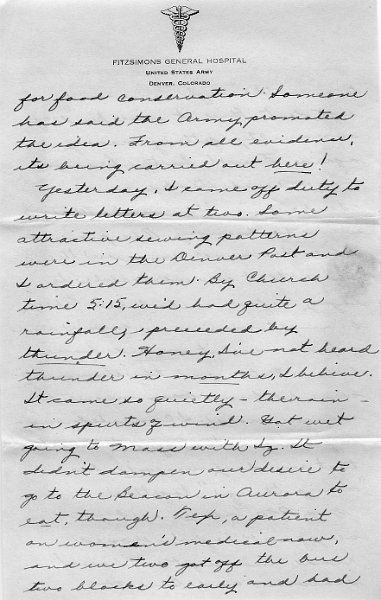 FITZSIMONS GENERAL HOSPITAL
UNITED STATES ARMY
DENVER, COLORADO
for food conservation. Someone
has said the Army promoted
the idea. From all evidence,
its being carried out here!
Yesterday, I came off duty to
write letters at two. Some
attractive sewing patterns
were in the Denver Post and
I ordered them. By Church
time 5:15, we'd had quite a
rainfall, preceded by
thunder. Honey, I've not heard
thunder in months, I believe.
It came so quietly - the rain -
in spurts of wind. Got wet
going to Mass with Iz. It
didn't dampen our desire to
go to the Beacon in Aurora to
eat, though. Tex, a patient
on women's medical now,
and we two got off the bus
two blocks to early and had